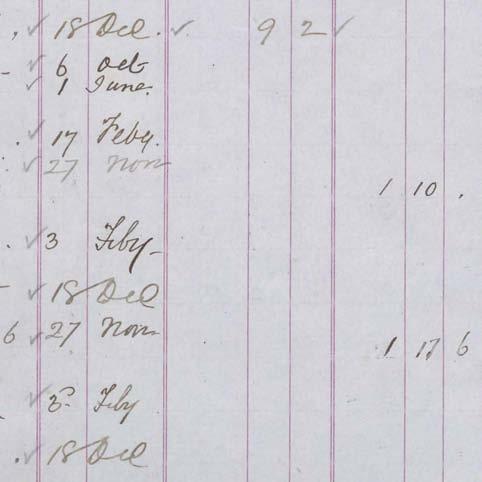 18 Dec. 9 2
6 Oct
1 June.
17 Feby.
27 Nov
1 10 .
3 Feby
18 Dec
6 27 Nov
1 17 6
3 Feby
18 Dec